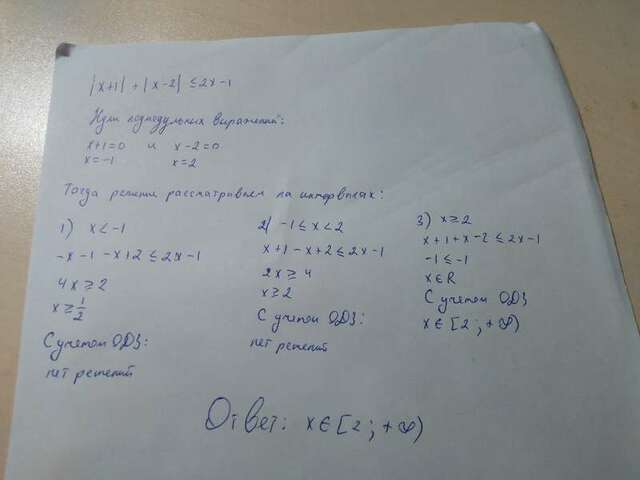 |x+1| + |x-2| ≤ 2x-1
Нули подмодульных выражений:
x+1=0 и x-2=0
x=-1 x=2
Тогда решение рассматриваем на интервалах:
1) x < -1
-x-1-x+2 ≤ 2x-1
4x ≥ 2
x ≥ 1/2
С учетом ОДЗ:
нет решений
2) -1 ≤ x < 2
x+1-x+2 ≤ 2x-1
2x ≥ 4
x ≥ 2
С учетом ОДЗ:
нет решений
3) x ≥ 2
x+1+x-2 ≤ 2x-1
-1 ≤ -1
x∈R
С учетом ОДЗ
x∈[2; +∞)
Ответ: x∈[2; +∞)